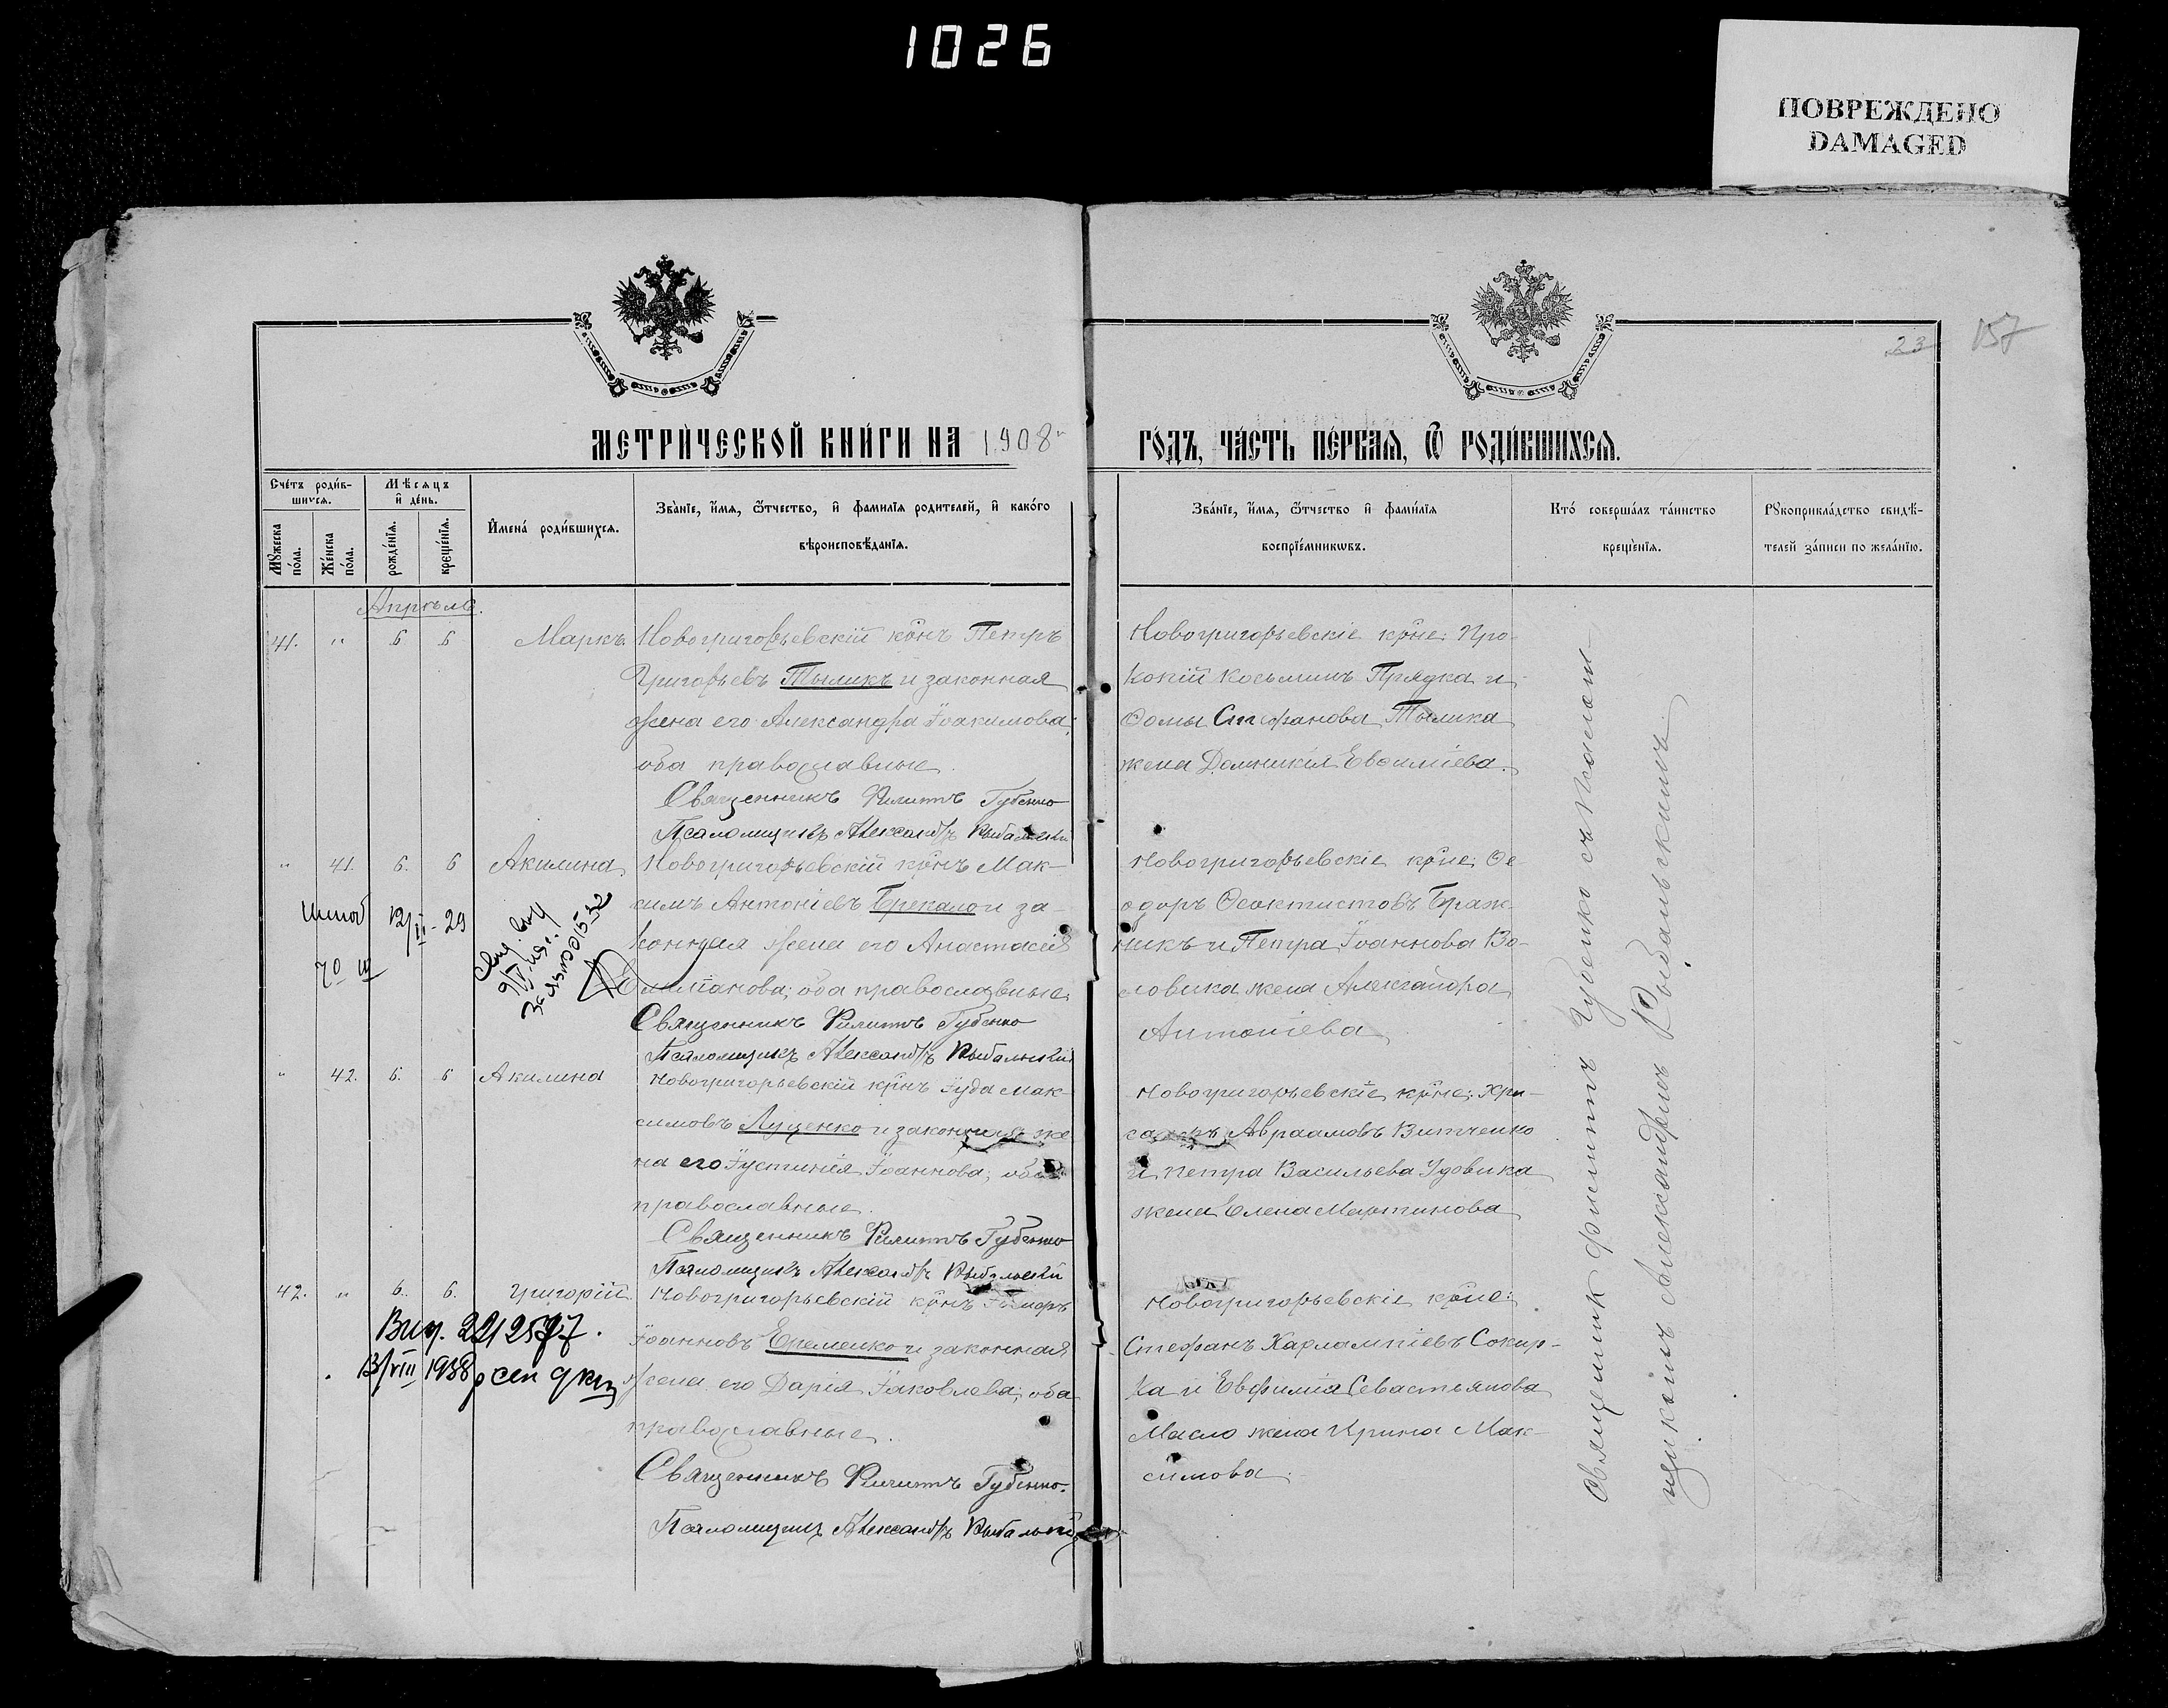 1026
ПОВРЕЖДЕНО
DAMAGED
23 157
МЕТРИЧЕСКОЙ КНИГИ НА 1908 ГОДЪ, ЧАСТЬ ПЕРВАЯ, Ѿ РОДИВШИХСЯ.
Счетъ родившихся.
Мужеска пола.
Женска пола.
Мѣсяцъ и день.
рожденія.
крещенія.
Имена родившихся.
Званіе, имя, ѿтчество, и фамилія родителей, и какого
вѣроисповѣданія.
Званіе, имя, ѿтчество и фамилія
воспріемниковъ.
Кто совершалъ таинство
крещенія.
Рукоприкладство свидѣ-
телей записи по желанію.
Апрѣль.
41. " 6 6 Маркъ. Новогригорьевскій кр̃нъ Петръ
Григорьевъ Тыликъ и законная
жена его Александра Іоакимова;
оба православные.
Священникъ Филиппъ Губенко
Псаломщикъ Александръ Рыбальскій
Новогригорьевскіе кр̃не: Про-
копій Косьминъ Прядка и
Ѳомы Стефанова Тылика
жена Домникія Евѳиміева.
" 41. 6. 6 Акилина. Новогригорьевскій кр̃нъ Мак-
симъ Антоніевъ Брекало и за-
конная жена его Анастасія
Емиліанова; оба православные.
Священникъ Филиппъ Губенко
Псаломщикъ Александръ Рыбальскій
12/II-29
Новогригорьевскіе кр̃не: Ѳе
одоръ Ѳеоктистовъ Браж-
никъ и Петра Іоаннова Во-
ловика жена Александра
Антоніева
" 42. 6. 6 Акилина Новогригорьевскій кр̃нъ Іуда Мак-
симовъ Луценко и законная же
на его Іустинія Іоаннова; оба
православные.
Священникъ Филиппъ Губенко
Псаломщикъ Александръ Рыбальскій
Новогригорьевскіе кр̃не: Хри-
Авраамовъ Витченко
и Петра Васильева Удовика
жена Елена Мартинова
42. " 6. 6. Григорій. Новогригорьевскій кр̃нъ
Іоанновъ Еременко и законная
жена его Дарія Іаковлева; оба
православные.
Священникъ Филиппъ Губенко.
Псаломщикъ Александръ Рыбальскій
13/VIII 1938 р
Новогригорьевскіе кр̃не:
Стефанъ Харлампіевъ Сокир-
ка и Евфимія Севастьянова
Масло жена Ирина Мак-
симова.
Священникъ Филиппъ Губенко съ псалом-
щикомъ Александромъ Рыбальскимъ.